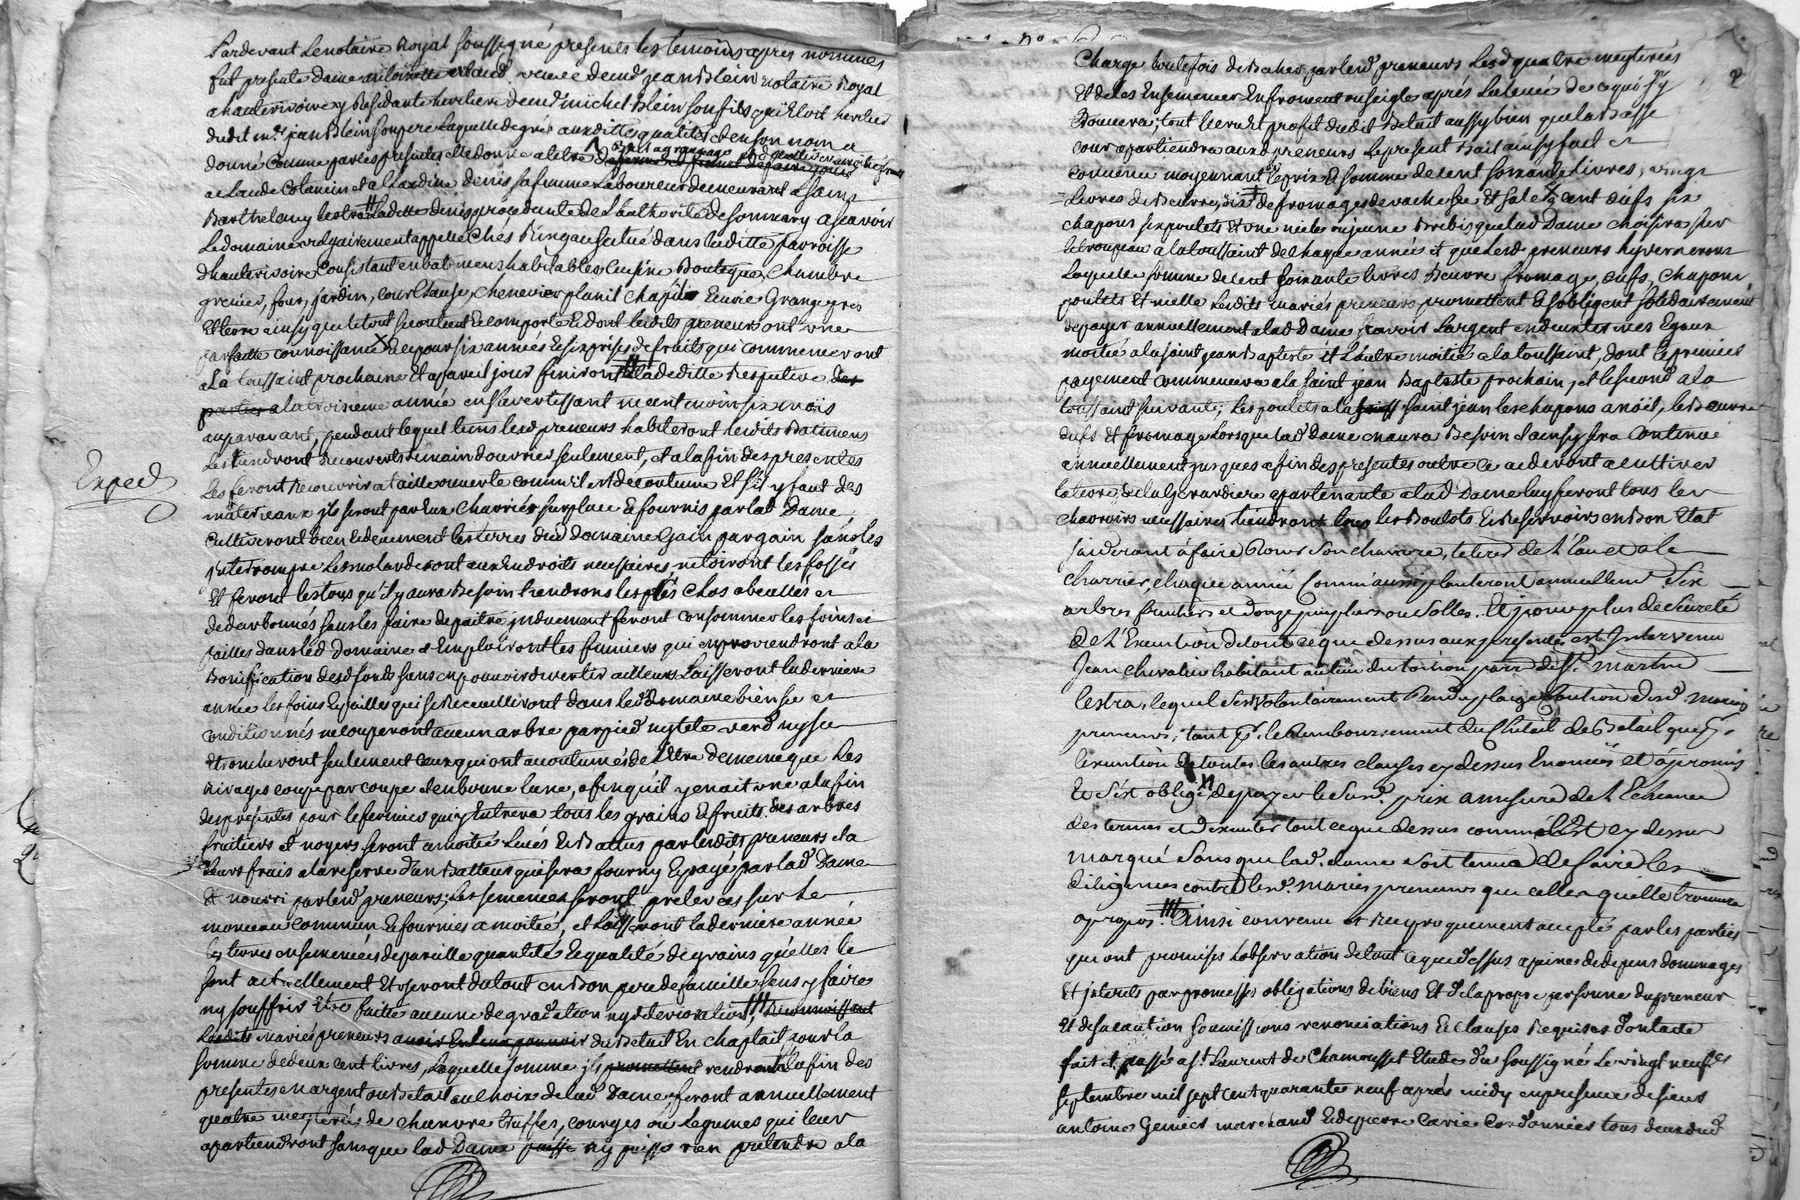 Pardevant Lenotaire Royal soussigné presents les temoins apres nommés
fut presente dame antoinette veuve de md jean Blein notaire Royal
a hauterivoire y Residante heritiere de md michel Blein son fils qui Etoit heritier
dudit me jean Blein son pere Laquelle de gré auxdittes qualités et en son nom a
donné Comme par les presentes elle donne a titre
a Claude Colancin et a Claudine denis sa femme Laboureur demeurant a saint
Barthelemy lestra Laditte denis procedante de L'authorité de son mary a scavoir
Le domaine vulgairement appellé Ches Ringau situé dans laditte parroisse
d'hauterivoire Consistant en batimens habitables Cuisine Bouteque, Chambre
grenier, four, jardin, cour Clause, Chenevier Ecurie Grange prés
Et terre ainsy que le tout se contient Ecomporte Et dont lesdits preneurs ont une
parfaitte connoissance Et pour six années Et six prises de fruits qui commenceront
a La toussaint prochaine Et a pareil jour finiront a laditte Respective des
parties a la troisieme année en s'avertissant neantmoins six mois
auparavant, pendant lequel tems lesd preneurs habiteront lesdits Batimens
Les tiendront Recouverts de main d'ouvrier seulement, et a la fin des presentes
Exped
Les feront Recouvrir a taille ouverte comme il est de coutume Et s'il y faut des
materieaux ils seront par Eux Charriés sur place Et fournis par lad Dame
Cultiveront bien Et duement les terres dud Domaine Gain par gain sans les
jnterrompre Les molarderont aux Endroits necessaires netoiront les fossés
Et feront les tous qu'il y aura Besoin tiendrons les prés Clos abeallés et
dederbonnés sans les faire depaitre jnduement feront consommer les foins et
pailles dans led Domaine et Emploiront les fumiers qui en proviendront a la
Bonification desd fonds sans en pouvoir divertir ailleurs Laisseront la derniere
année les foins Et pailles qui se Recueilliront dans led Domaine bien se et
conditionnés ne couperont aucun arbre par pied ny tete verd ny sec
Et roncheront seulement Ceux qui ont accoutumés de L'Etre de meme que Les
rivages coupe par coupe et en bonne lune, afin qu'il y en ait une a la fin
des presentes pour le fermier qui y Entrera tous les grains Et fruits des arbres
fruitiers et noyers seront a moitié Levés Et Battus par lesdits preneurs et a
Leurs frais a la reserve d'un Batteur qui sera fourny Et payé par lad Dame
Et nourri par lesd preneurs; Les semences seront prelevées sur Le
monceau commun Et fournies a moitié, et Laisseront la derniere année
les terres ensemencées de pareille quantité Et qualité de grains qu'elles le
sont actuellement Et vseront du tout en Bon pere de famille sans y faire
ny souffrir Etre faitte aucune degradation ny deterioration, Reconnoissent
Lesdits mariés preneurs avoir En leur pouvoir du Betail En chaptail pour la
somme de deux cent livres, Laquelle somme ils promettent rendront a La fin des
presentes en argent ou Betail au choix de lad Dame feront annuellement
quatre meyterés de chanvre truffes, courges ou Legumes qui leur
apartiendront sans que lad Dame puisse ny puisse rien pretendre a la
2
Charge toutefois de Bècher par lesd preneurs Lesd quatre meyterées
Et de les Ensemencer En froment ou seigle aprés La levée de ce qui s'y
trouvera; tout le cruit profit dudit Betail aussy bien que la Basse
cour apartiendra auxd preneurs Le present Bail ainsy fait et
convenu moyennant Le prix Et somme de cent soixante Livres, vingt
Livres de Beurre, dix de fromages de vache sec Et salé, cent oeufs six
chapons six poulets Et une mielle ou jeune Brebis que lad Dame choisira sur
Le troupeau a la toussaint de chaque années et que lesd preneurs hyverneront
Laquelle somme de cent soixante livres Beurre fromage, oeufs, chapons
poulets Et mielle Lesdits mariés preneurs promettent Et s'obligent solidairement
de payer annuellement a lad Dame scavoir L'argent en deux termes Egaux
moitié a la saint jean Baptiste et L'autre moitié a la toussaint, dont le premier
payement commencera a la saint jean Baptiste prochain, et le second a la
toussaint suivante; Les poulets a la saint jean les chapons a noël, le Beurre
oeufs Et fromage Lorsque lad Dame en aura Besoin et ainsy sera Continué
annuellement jusques a fin des presentes outre ce aideront a cultiver
la terre de la Gerardiere apartenante a lad Dame luy feront tous les
charrois necessaires tiendront tous les Boutots Et Reservoirs en Bon Etat
s'aideront a faire Rouir son chanvre, le tirer de L'Eau et a le
charrier, chaque année Comm'aussi planteront annuellement Six
arbres fruitiers et douze peupliers ou Solles. Et pour plus de Seureté
de L'Execution de tout ce que dessus aux presentes est Intervenu
Jean Chevalier habitant au lieu du toirion parr de St martin
Lestra, lequel s'est volontairement Rendu plaige Caution desd mariés
preneurs, tant pr le Remboursement du Chatail de Betail que pr
l'execution de toutes les autres clauses cy dessus Enoncées Et a promis
Et s'est obligé de payer le Susd prix a mesure de L'Echeance
des termes et d'executer tout ce que dessus comme il Est cy dessus
marqué sans que lad. dame soit tenue de faire les
diligences contre lesd. mariés preneurs que celles qu'elle trouvera
apropos Ainsi convenu et Reciproquement accepté par les parties
qui ont promises L'observation de tout ce que dessus a peines de depens dommages
Et jnterets par promesses obligations de biens Et de la propre personne du preneur
Et de sa caution soumissions renonciations Et clauses Requises Dont acte
fait et passé a St Laurent de Chamousset Etude du soussigné Le vingt neuf
septembre mil sept cent quarante neuf aprés midy en presence de sieur
antoine Gemier marchand Et de pierre Carrie Cordonnier tous deux dud